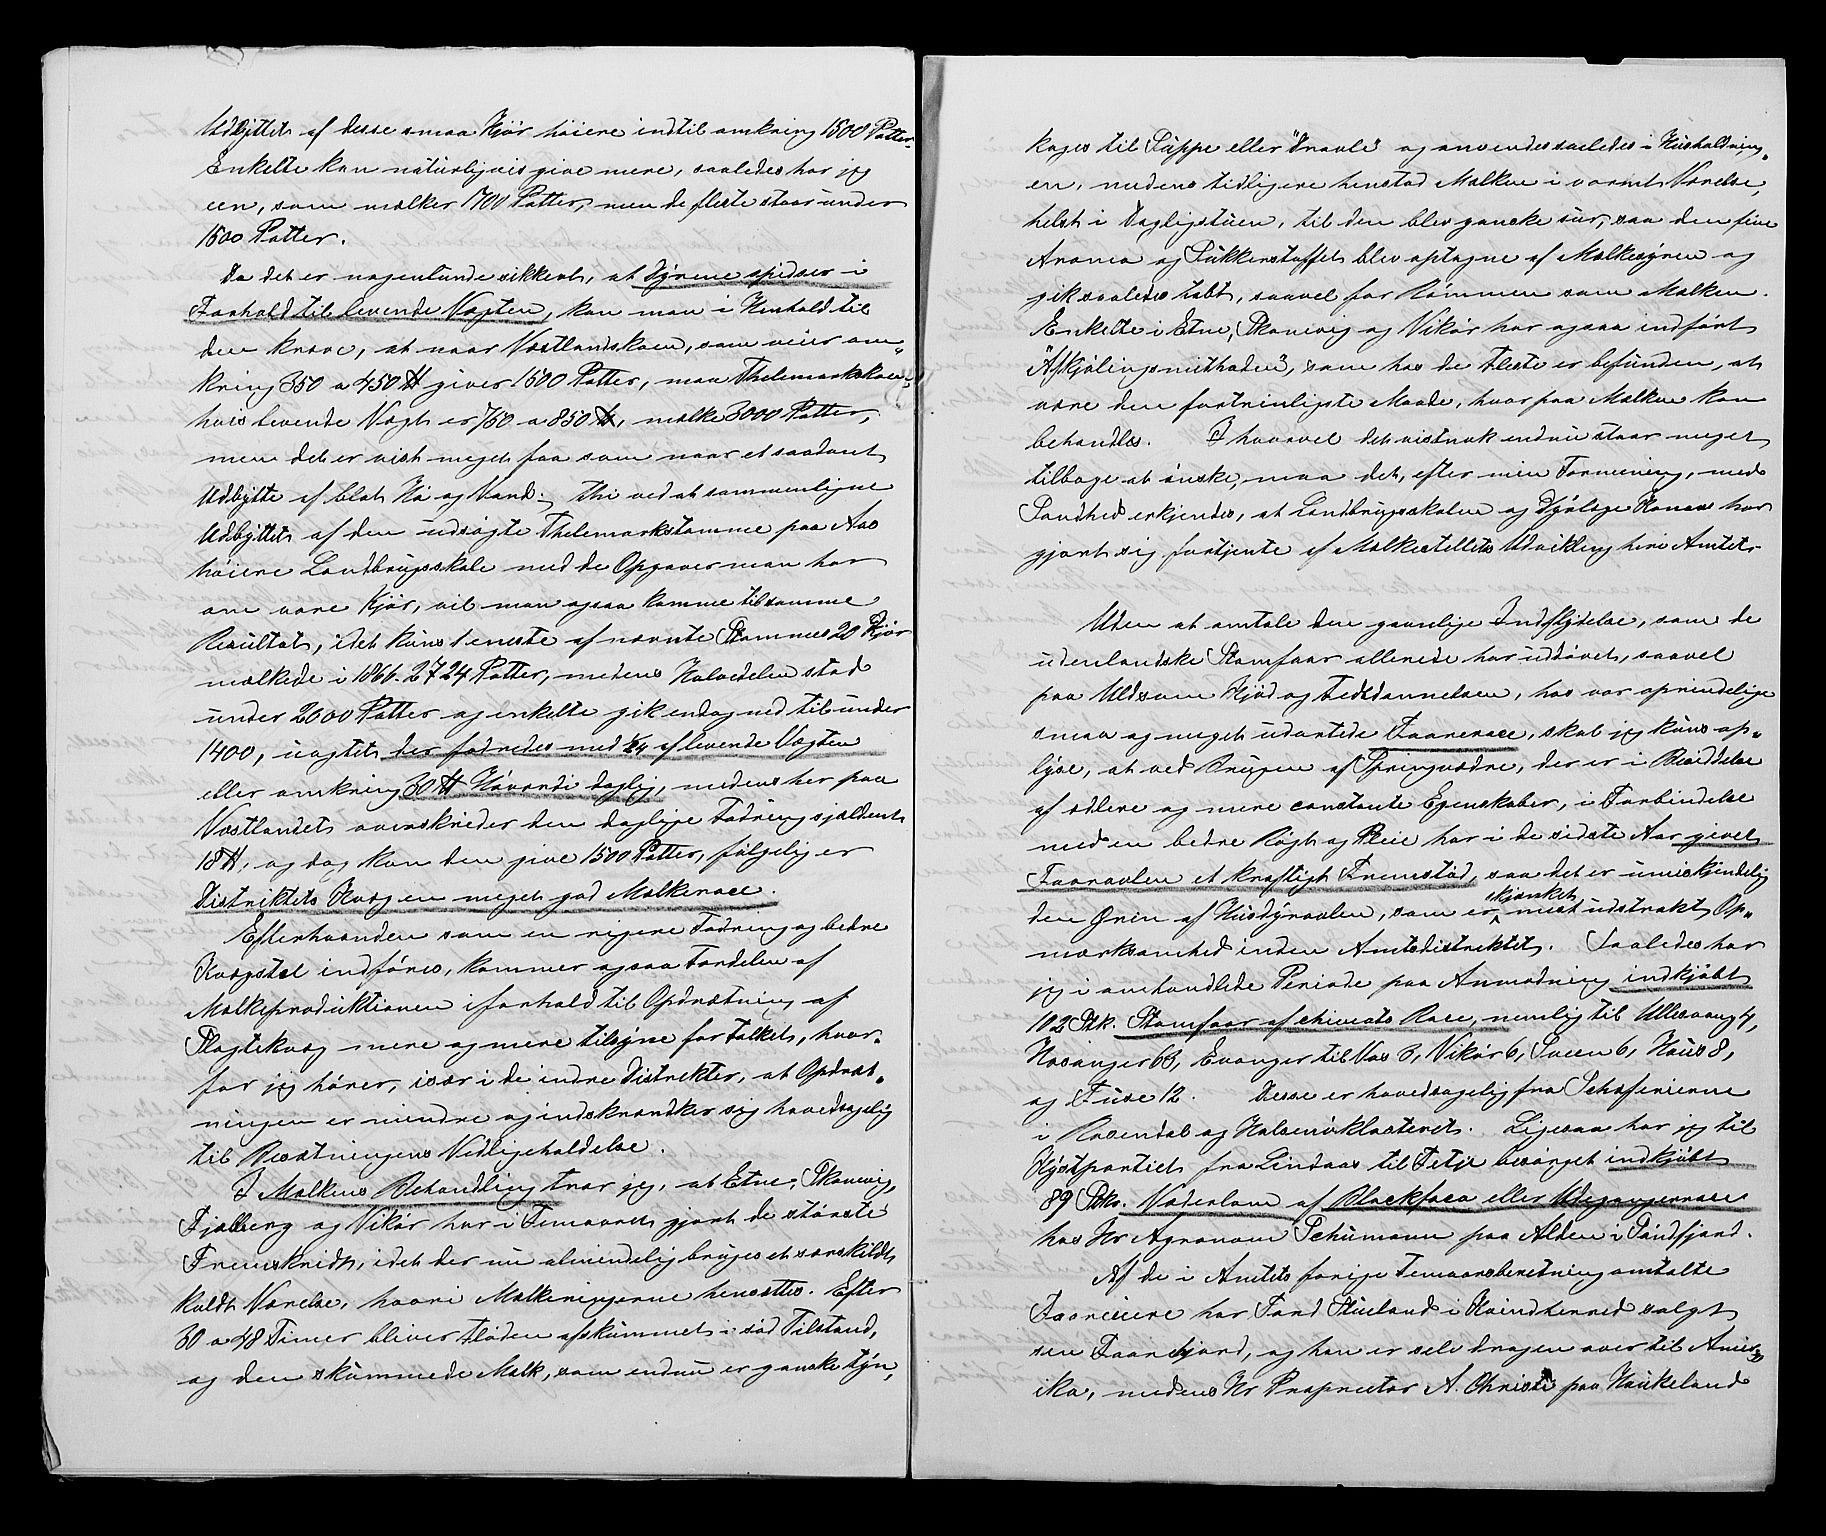 Udbyttet af desse smaa Kjør høiere indtil omkring 1500 Potter.
Enkelte kan naturligvis give mere, saaledes har jeg
een, som melker 1700 Potter, men de fleste staar under
1500 Potter.
Da det er nogenlunde sikkert, at Dyrene spidser i
Forhold til levende Vægten, kan man i Henhold til
den kræve, at naar Vestlandskoen, som veier om„
kring 350 a 450 ℔ giver 1500 Potter, maa Thelemarkskoen,
hvis levende Vægt er 750 a 850 ℔, mælke 3000 Potter,
men det er vist meget faa som naar et saadant
Udbytte af blot Hø og Vand. Thi ved at sammenligne
Udbyttet af den udsøgte Thelemarkstamme paa Aas
høiere Landbrugsskole med de Opgaver man har
om vore Kjør, vil man ogsaa komme til samme
Resultat, idet kuns 1 eneste af nævnte Stammes 20 Kjør
mælkede i 1866. 2724 Potter, medens Halvedelen stod
under 2000 Potter og enkelte gik endog ned til under
1400, uagtet der fodredes med 1/24 af levende Vægten
eller omkring 30 ℔ Høværdi daglig, medens her paa
Vestlandet overskrider den daglige Fodring sjældent
18 ℔, og dog kan den give 1500 Potter, følgelig er
Distriktets Kvæg en meget god Melkerace.
Efterhvanden som en rigere Fodring og bedre
Kvægstel indføres, kommer ogsaa Fordelen af
Melkeproduktionen iforhold til Opdrætning af
Slagtekvæg mere og mere tilsyne for Folket, hvor„
for jeg hører, især i de indre Distrikter, at Opdræt„
ningen er mindre og indskrænker sig hovedsagelig
til Besætningens Vedligeholdelse.
I Melkens Behandling tror jeg, at Etne, Skonevig,
Fjelberg og Vikør har i Femaaret gjort de største
Fremskridt, idet der nu almindelig bruges et særskildt
koldt Værelse, hvori Melkeringerne hensættes. Efter
30 a 48 Timer bliver Fløden afskummet i sød Tilstand,
og den skummede Melk, som endnu er ganske tyn,
koges til Suppe eller "Dravle" og anvendes saaledes i Husholdning„
en, medens tidligere henstod Melken i varmt Værelse,
helst i Dagligstuen, til den blev ganske sur, saa den fine
Aroma og Sukkerstoffet blev optagne af Melkesyren og
gik saaledes tabt, saavel for Rømmen som Melken.
Enkelte i Etne, Skonevig og Vikør har ogsaa indført
"Afkjølingsmethoden", som hos de fleste er befunden, at
være den fortrinligste Maade, hvor paa Melken kan
behandles. Ihvorvel det vistnok endnu staar meget
tilbage at ønske, maa det, efter min Formening, med
Sandhed erkjendes, at Landbrugsskolen og Dyrlæge Konow har
gjort sig fortjente af Melkestellets Udvikling heri Amtet.
Uden at omtale den gavnlige Indflydelse, som de
udenlandske Stamfaar allerede har udøvet, saavel
paa Uld som Kjød og Fedtdannelsen, hos vor oprindelige
smaa og meget udartede Faarerace, skal jeg kuns op„
lyse, at ved Brugen af Springvædre, der er i Besiddelse
af ædlere og mere constante Egenskaber, i Forbindelse
med en bedre Røgt og Pleie har i de sidste Aar givet
Faaravlen et kraftigt Fremstød, saa det er umiskjendelig
den Gren af Husdyravlen, som er skjænket mest udstrakt Op„
mærksomhed inden Amtsdistriktet. Saaledes har
jeg i omhandlede Periode paa Anmodning indkjøbt
102 Stk. Stamfaar af cheviots Race, nemlig til Ullensvang 4,
Hosanger 63, Evanger til Vos 3, Vikør 6, Sveen 6, Haus 8,
og Fuse 12. Desse er hovedsagelig fra Schæferierne
i Rosendal og Halsenøklosteret. Ligesaa har jeg til
Kystpartiet fra Lindaas til Fetje besørget indkjøbt
89 Stk. Væderlam af Blackfaca eller Udegangerrace
hos Hr Agronom Schumann paa Alden i Søndfjord.
Af de i Amtets forige Femaarsberetning omtalte
Faareeiere har Fond Stueland i Kvindherred solgt
sin Faarehjord, og han er selv dragen over til Amer„
ika, medens Hr Proprietær A. Christie paa Haukeland